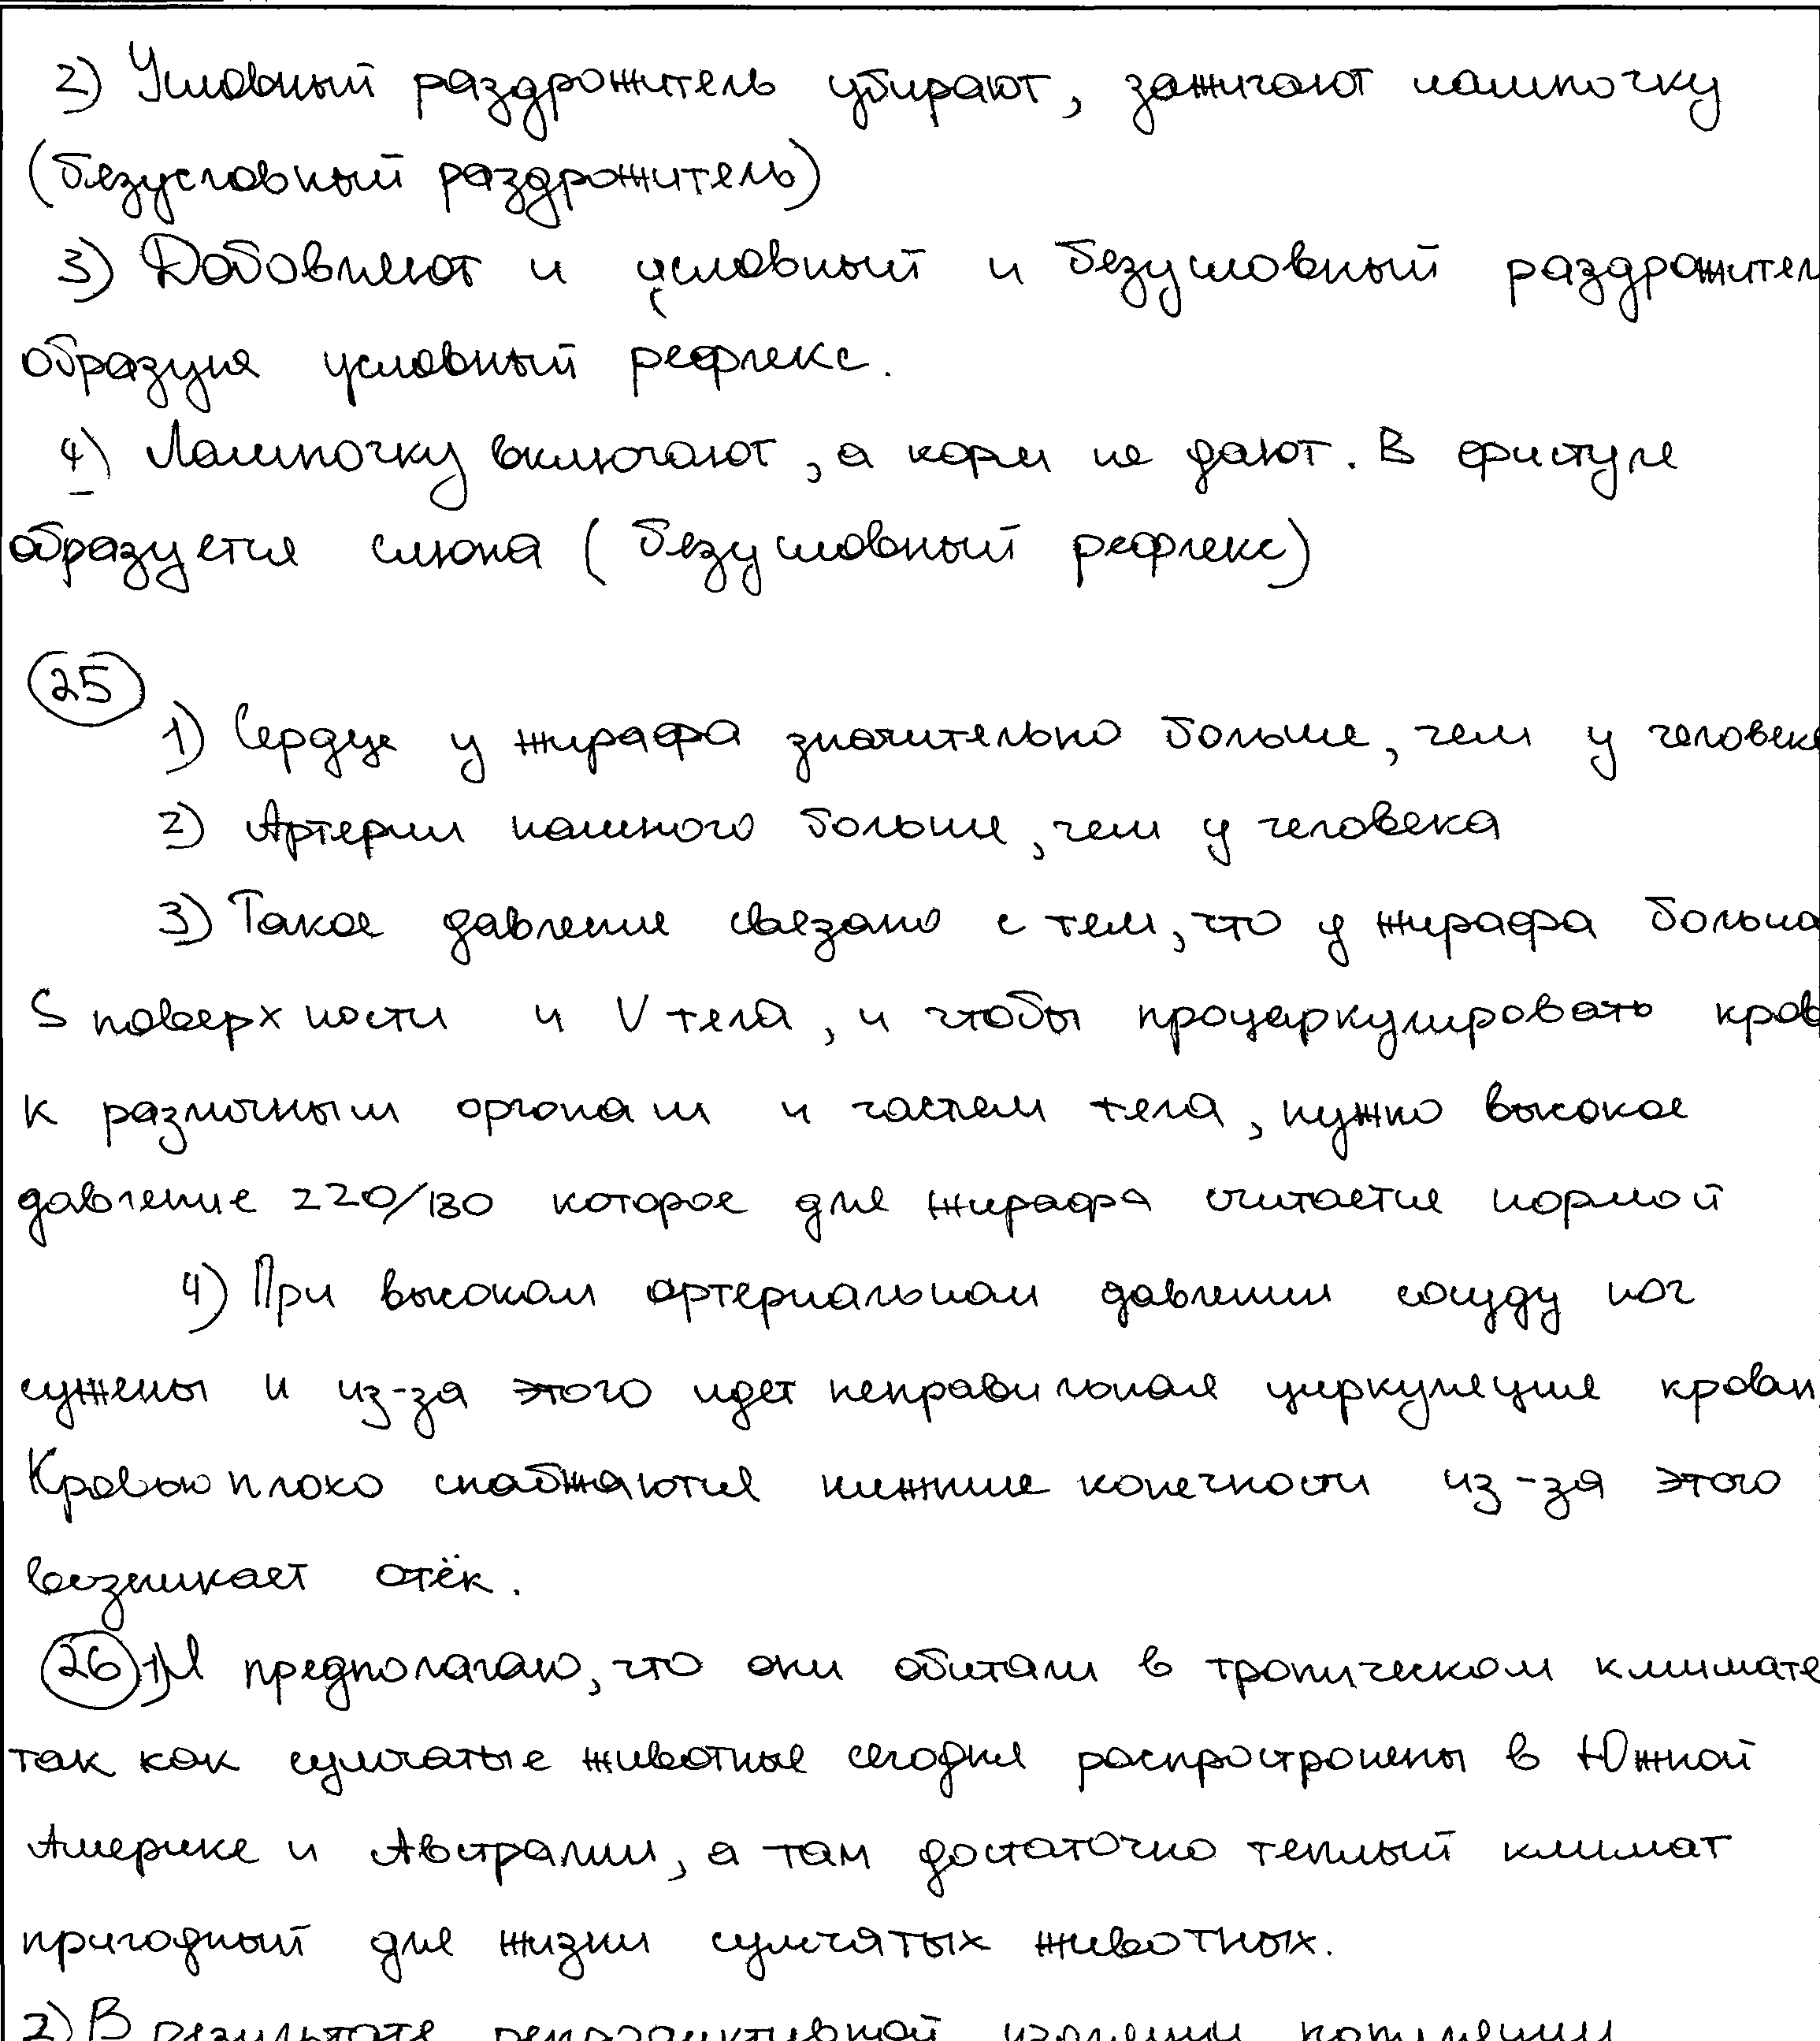 2) Условный раздрожитель убирают, зажигают лампочку
(безусловный раздрожитель)
3) Добовляют и условный и безусловный раздражител
образуя условный рефлекс.
4) Лампочку включают, а корм не дают. В фистуле
образуется слюна (безусловный рефлекс)
25
1) Сердце у жирафа значительно больше, чем у человека
2) Артерии намного больше, чем у человека
3) Такое давление связано с тем, что у жирафа больша
S поверхности и V тела, и чтобы процеркулировать кров
к различным органам и частем тела, нужно высокое
давление 220/180 которое для жирафа считается нормой
4) При высоком артериальном давлении сосуду ног
сужены и из-за этого идет неправильная циркуляция крови
Кровью плохо снабжаются нижние конечности из-за этого
возникает отёк.
26 1) Я предполагаю, что они обитали в тропическом климате
так как сумчатые животные сегодня распространены в Южной
Америке и Австралии, а там достаточно теплый климат
пригодный для жизни сумчатых животных.
2) В результате репродуктивной изоляции популяции